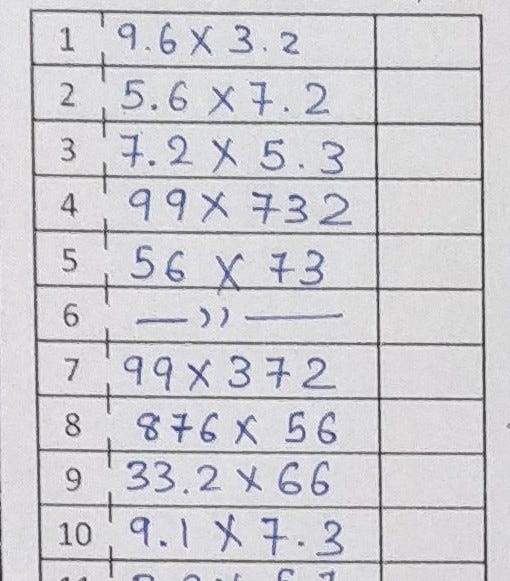 1 9.6 X 3.2
2 5.6 X 7.2
3 7.2 X 5.3
4 99 X 732
5 56 X 73
6 — )) —
7 99 X 372
8 876 X 56
9 33.2 X 66
10 9.1 X 7.3